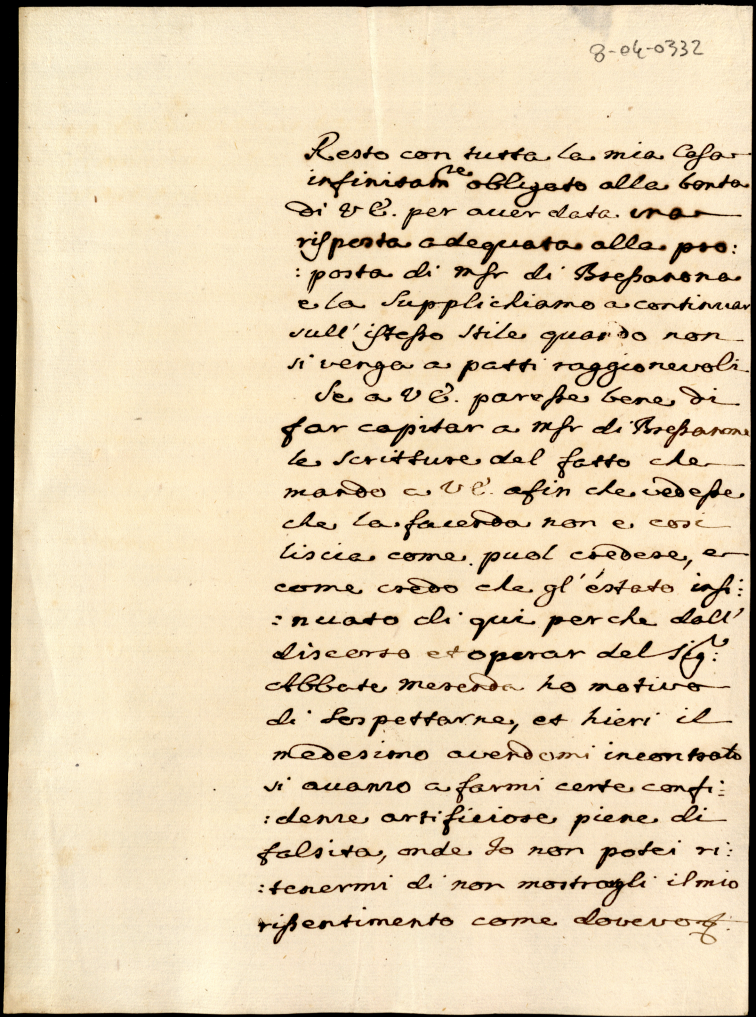 8-04-0332
Resto con tutta la mia Casa
infinitam.te obligato alla bonta
di V E. per auer data una
risposta adequata alla pro:
:posta di Msr di Bressanona
e la supplichiamo a continuar
sull' istesso stile quando non
si venga a patti raggionevoli
Se a V E. paresse bene di
far capitar a Msr di Bressanone
le scritture del fatto che
mando a V E. afin che vedesse
che la facenda non e cosi
liscia come puol credere, e
come credo che gl'éstato insi:
:nuato di qui perche dall'
discorso et operar del Sig.r
Abbate Merenda ho motivo
di sospettarne, et hieri il
medesimo avendomi incontrato
si auanzo a farmi certe confi:
:denze artificiose piene di
falsita, onde Io non potei ri:
:tenermi di non mostragli il mio
rissentimento come dovevo